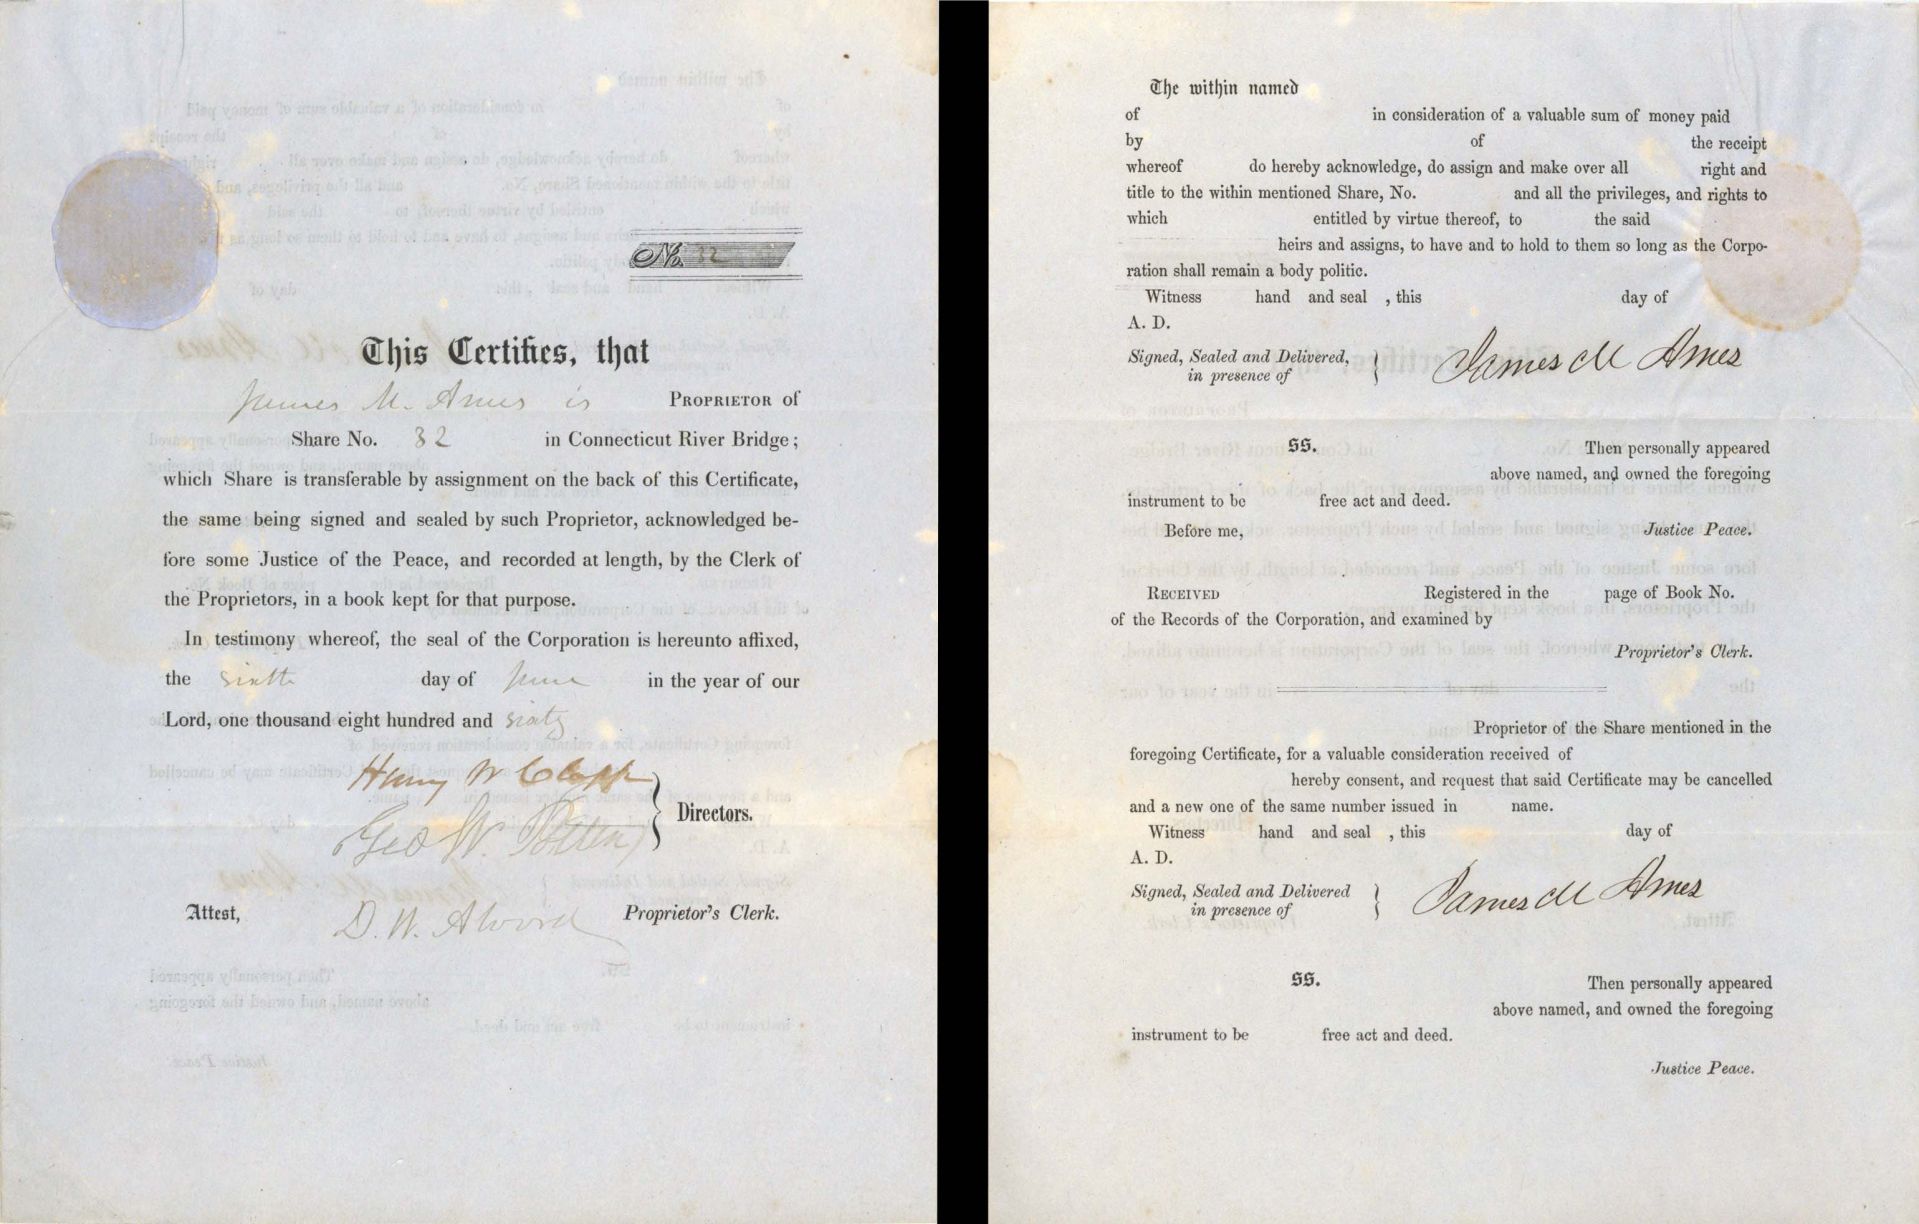 No. 32
This Certifies, that
James M. Ames is PROPRIETOR of
Share No. 32 in Connecticut River Bridge;
which Share is transferable by assignment on the back of this Certificate,
the same being signed and sealed by such Proprietor, acknowledged be-
fore some Justice of the Peace, and recorded at length, by the Clerk of
the Proprietors, in a book kept for that purpose.
In testimony whereof, the seal of the Corporation is hereunto affixed,
the sixth day of June in the year of our
Lord, one thousand eight hundred and sixty
Henry W Clapp
Geo W.
Directors.
Attest, D. W. Alvord Proprietor's Clerk.
The within named
of in consideration of a valuable sum of money paid
by of the receipt
whereof do hereby acknowledge, do assign and make over all right and
title to the within mentioned Share, No. and all the privileges, and rights to
which entitled by virtue thereof, to the said
heirs and assigns, to have and to hold to them so long as the Corpo-
ration shall remain a body politic.
Witness hand and seal , this day of
A. D.
Signed, Sealed and Delivered,
in presence of
James M Ames
SS. Then personally appeared
above named, and owned the foregoing
instrument to be free act and deed.
Before me, Justice Peace.
RECEIVED Registered in the page of Book No.
of the Records of the Corporation, and examined by
Proprietor's Clerk.
Proprietor of the Share mentioned in the
foregoing Certificate, for a valuable consideration received of
hereby consent, and request that said Certificate may be cancelled
and a new one of the same number issued in name.
Witness hand and seal , this day of
A. D.
Signed, Sealed and Delivered
in presence of
James M Ames
SS. Then personally appeared
above named, and owned the foregoing
instrument to be free act and deed.
Justice Peace.